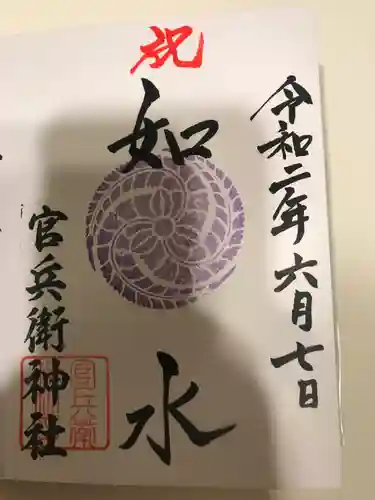 祝
令和二年六月七日
如水
官兵衛神社
官兵衛